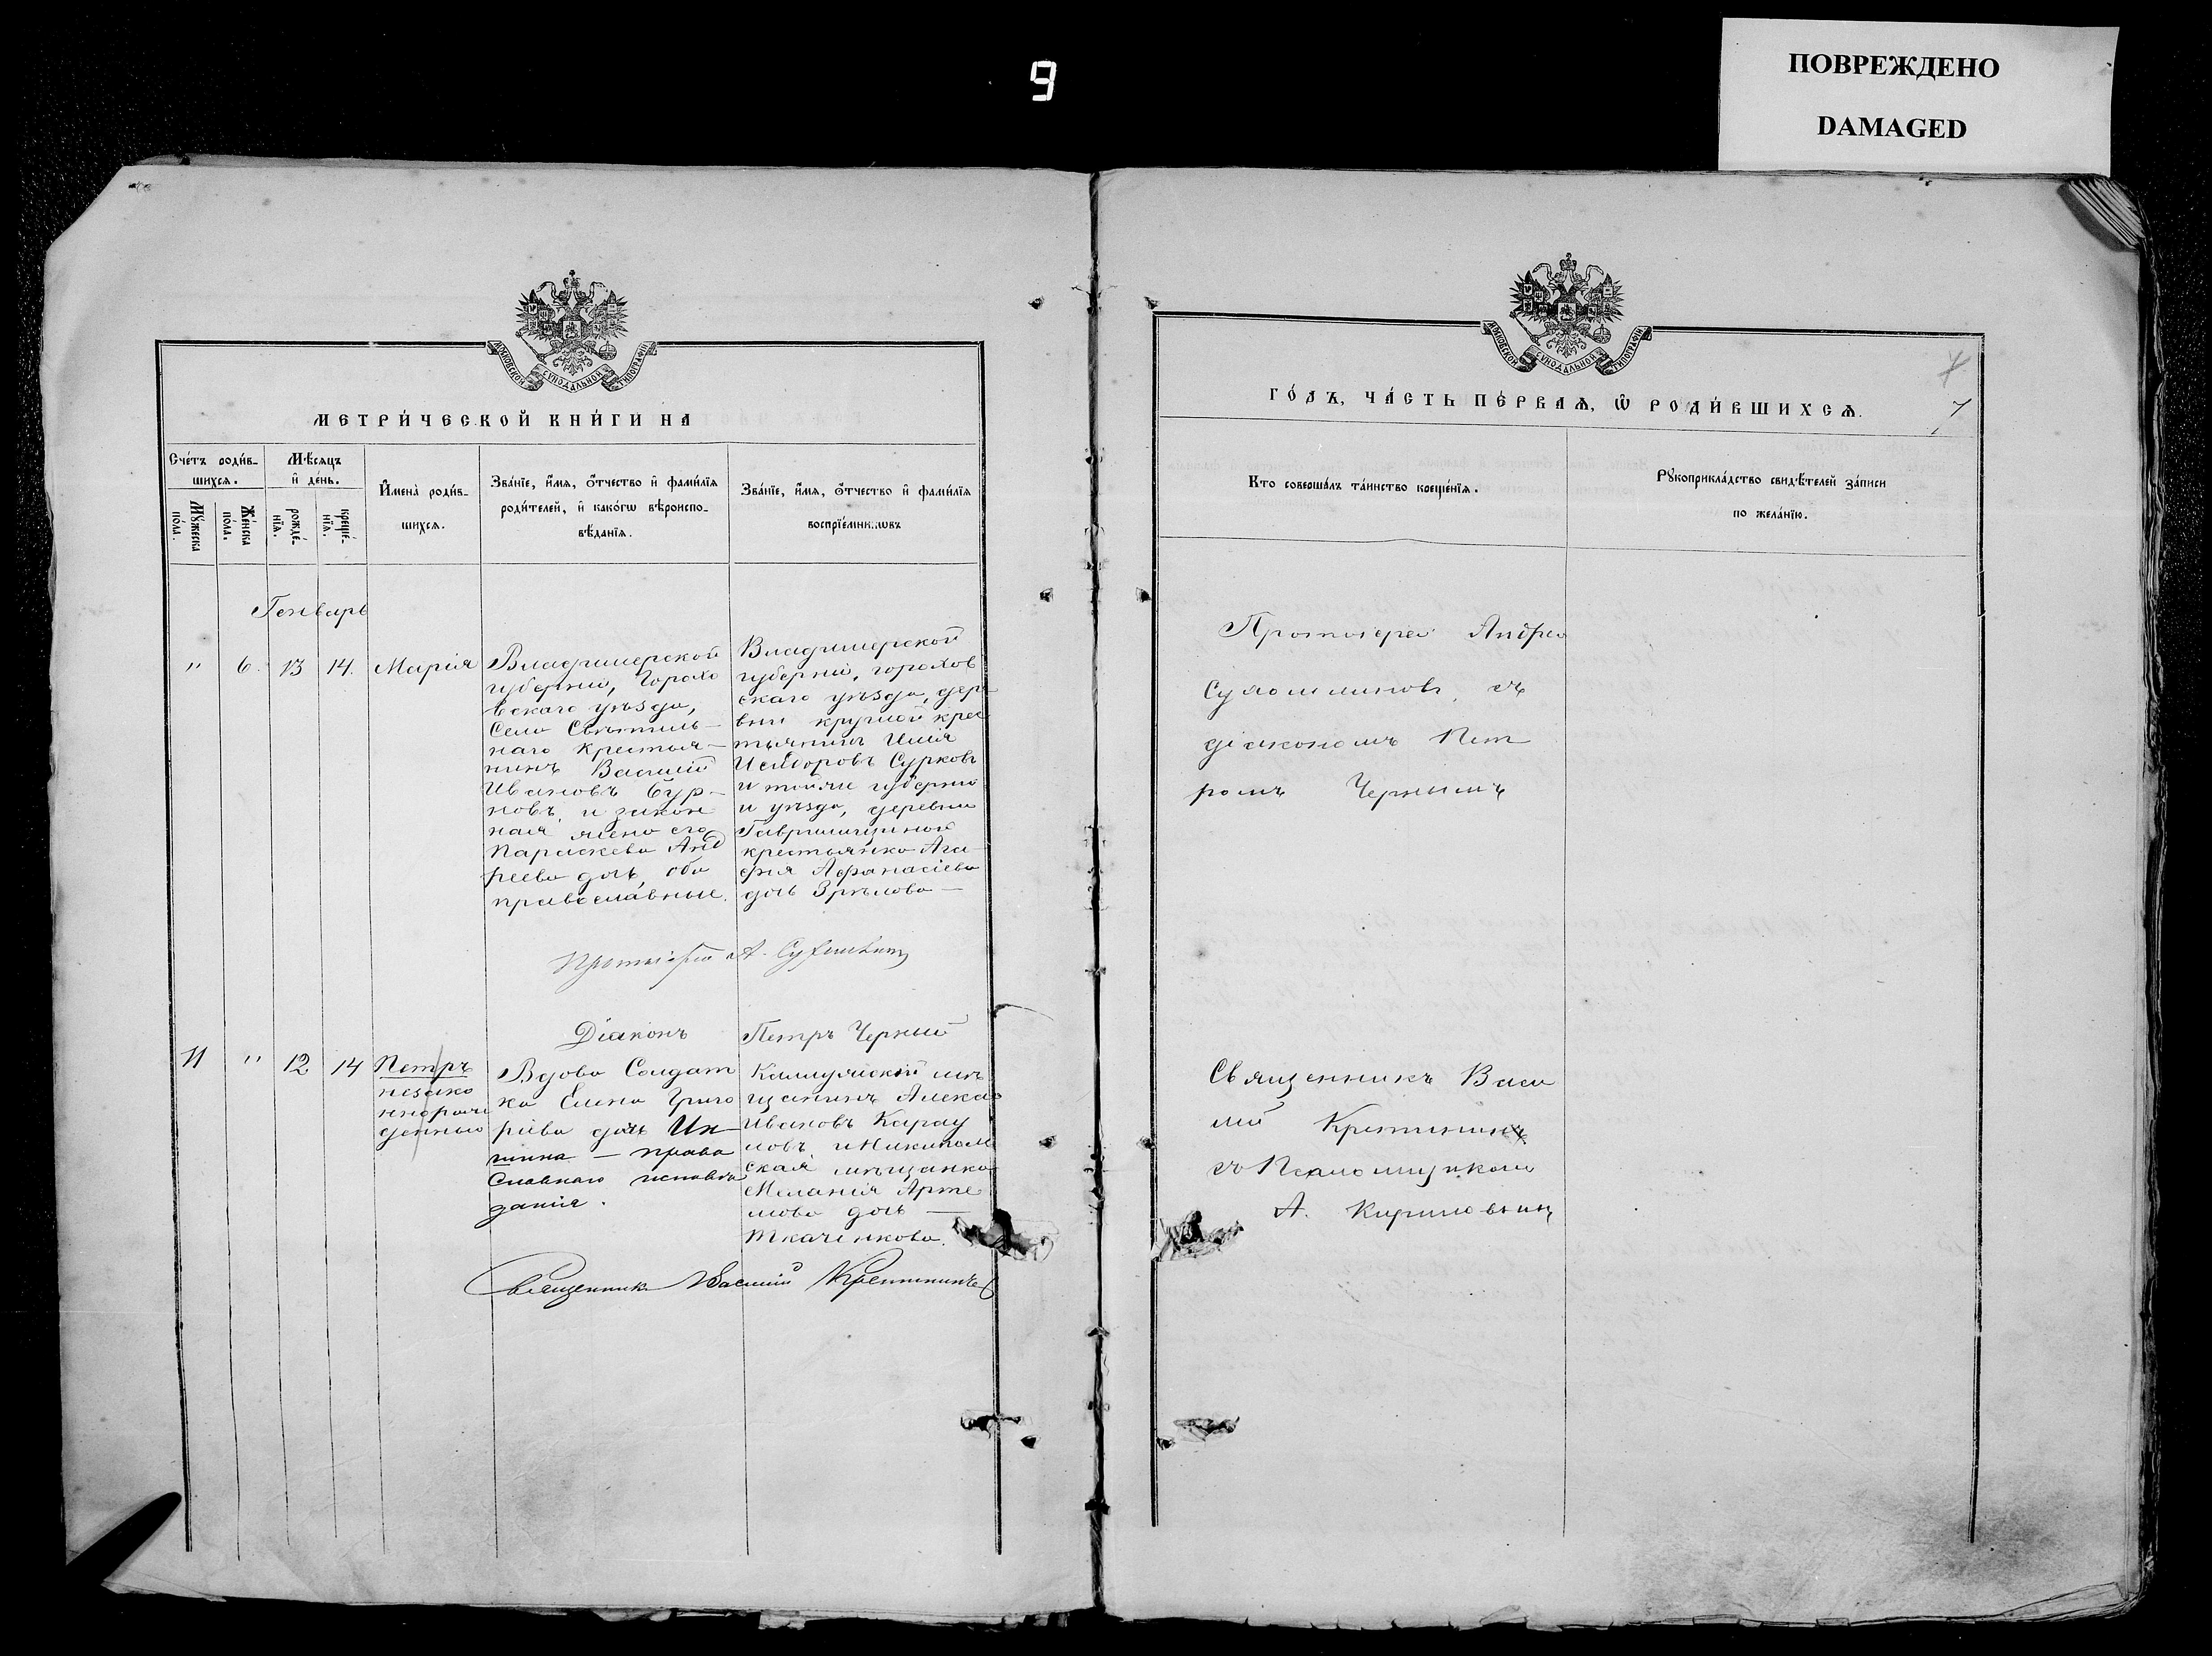 9
ПОВРЕЖДЕНО
DAMAGED
МОСКОВСКОЙ СУНОДАЛЬНОЙ ТИПОГРАФІИ
МЕТРИ́ЧЕСКОЙ КНИ́ГИ НА
Сче́тъ роди́в-
шихся.
Мꙋ́жеска по́ла.
Же́нска по́ла.
Мѣ́сяцъ
и҆ де́нь.
рожде́-
нїѧ.
креще́-
нїѧ.
И҆мена̀ роди́в-
шихся.
Зва́нїе, и҆́мѧ, ѻ҆́тчество и҆ фами́лїѧ
роди́телей, и҆ како́гѡ вѣроиспо-
вѣ́данїѧ.
Зва́нїе, и҆́мѧ, ѻ҆́тчество и҆ фами́лїѧ
воспрїе́мникѡвъ
Генварь
" 6. 13 14. Марія
Владимерской
губерніи, Горохо
вскаго уѣзда,
Села Свѣтиль-
наго крестья-
нинъ Василій
Ивановъ Бур-
новъ, и закон
ная жена его
Параскева Анд
реева дочь, оба
православные.
Владимерской
губерніи, горохов
скаго уѣзда, дерѣ
вни круглой крес
тьянинъ Илія
Исидоровъ Сурковъ
и тойже губерніи
и уѣзда, деревни
крестьянка Ага
фія Афанасіева
дочь Зрѣлова —
Протоіерей А. Сухомлинъ
Діаконъ Петръ Черный
11 " 12 14 Петръ
незако
ннорож
денный
Вдова Солдат
ка Елена Григо
ріева дочь Ик-
шина — право
славнаго исповѣ
данія.
мѣ
щанинъ Алекса
Ивановъ Карау
ловъ, и Никополь
ская мѣщанка
Меланія Арте
мова дочь —
Ткаченкова.
Священникъ Василій Кретининъ
ГО́ДЪ, ЧА́СТЬ ПЕ́РВАѦ, Ѡ҆ РОДИ́ВШИХСѦ.
7
Кто соверша́лъ та́инство креще́нїѧ.
Рꙋкоприкла́дство свидѣ́телей за́писи
по жела́нїю.
Протоіерей Андрей
Сухомлиновъ, съ
діакономъ Пет
ромъ Чернымъ
Священникъ Васи
лій Кретининъ
съ Псаломщикомъ
А.